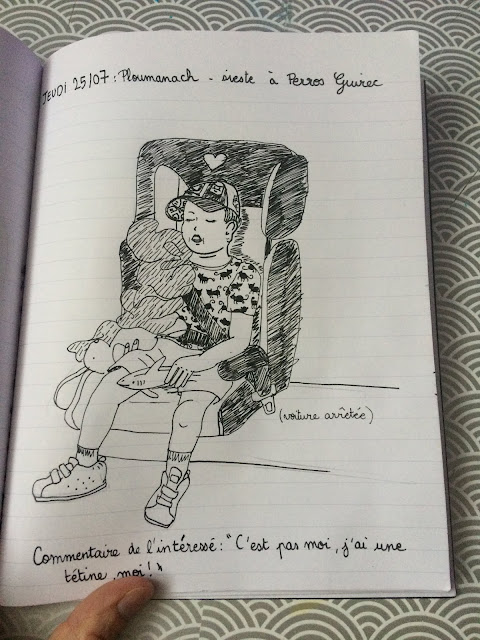 JEUDI 25/07 : Ploumanach - sieste à Perros Guirec
(voiture arrêtée)
Commentaire de l'intéressé : "C'est pas moi, j'ai une
tétine, moi !"